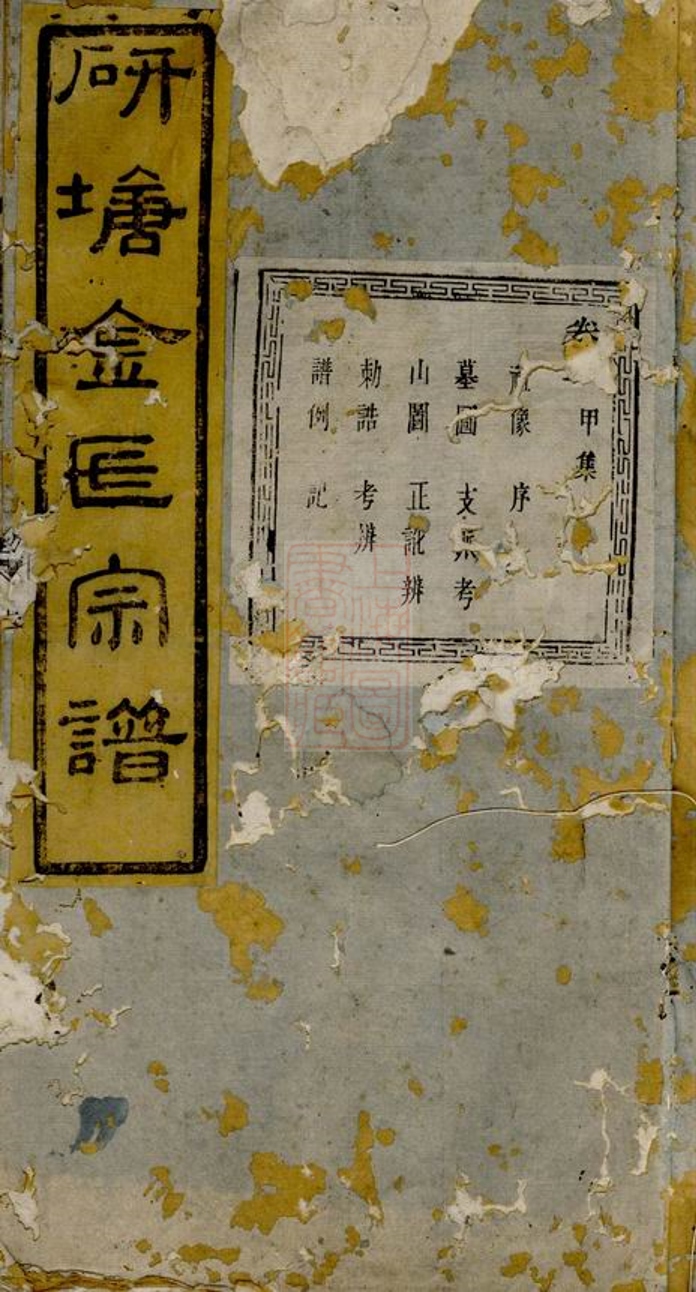 卷 甲集
像 序
墓圖 支 考
山圖 正訛辨
勅誥 考辨
譜例 記
研塘金氏宗譜